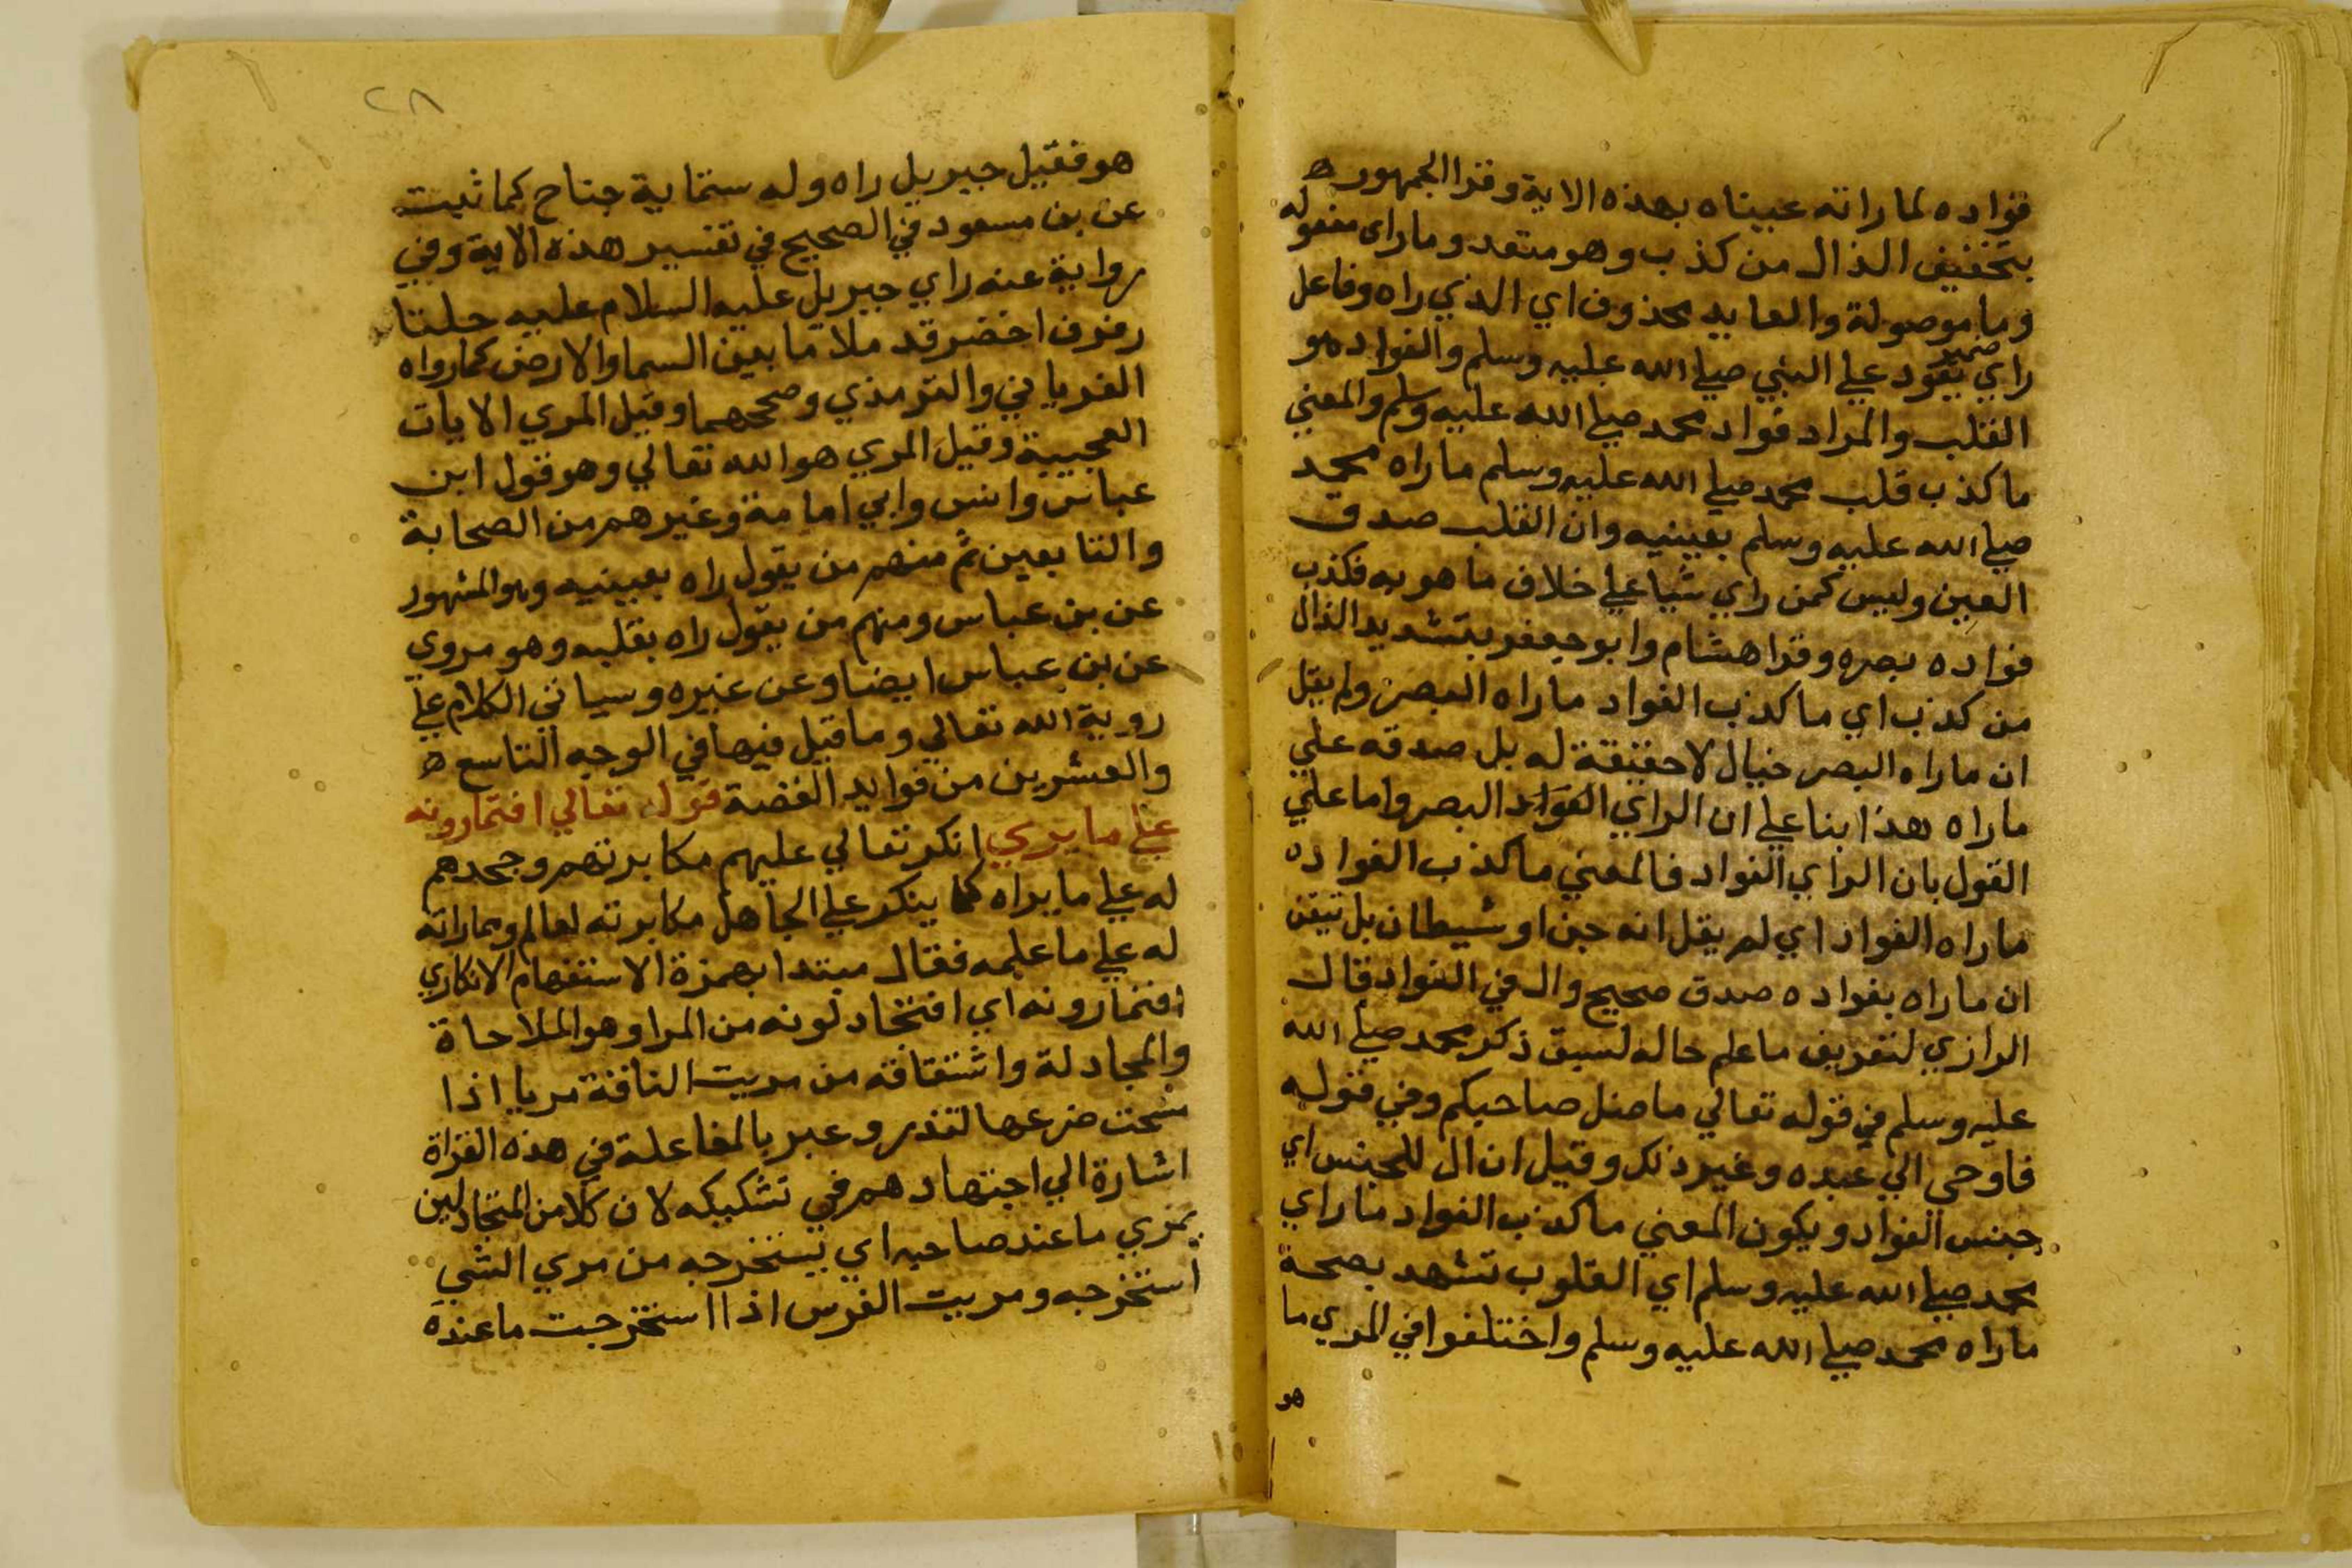 فواده لما راته عيناه بهذه الاية وقرا الجمهور ه
بتخفيف الذال من كذب وهو متعد وما راى مفعوله
وما موصولة والعايد محذوف اي الذي راه وفاعل
راي ضمير يعود علي النبي صلي الله عليه وسلم والفواد هو
القلب والمراد فواد محمد صلي الله عليه وسلم والمعني
ما كذب قلب محمد صلي الله عليه وسلم ما راه محمد
صلي الله عليه وسلم بعينيه وان القلب صدق
العين وليس كمن راي شيا علي خلاف ما هو به فكذب
فواده بصره وقرا هشام وابو جعفر بتشديد الذال
من كذب اي ما كذب الفواد ما راه البصر ولم يقل
ان ما راه البصر خيال لا حقيقة له بل صدقه علي
ما راه هذا بنا علي ان الراي الفواد البصر واما علي
القول بان الراي الفواد فالمعني ما كذب الفواد ه
ما راه الفواد اي لم يقل انه جن او شيطان بل تيقن
ان ما راه بفواده صدق صحيح وال في الفواد قال
الرازي لتعريف ما علم حاله لسبق ذكر محمد صلي الله
عليه وسلم في قوله تعالي ما ضل صاحبكم وفي قوله
فاوحي الي عبده وغير ذلك وقيل ان ال للجنس اي
جنس الفواد ويكون المعني ما كذب الفواد ما راي
محمد صلي الله عليه وسلم اي القلوب تشهد بصحة
ما راه محمد صلي الله عليه وسلم واختلفوا في المري ما
هو
٢٨
هو فقيل جبريل راه وله ستماية جناح كما ثبت
عن بن مسعود في الصحيح في تفسير هذه الاية وفي
رواية عنه راي جبريل عليه السلام عليه حلتا
رفرف اخضر قد ملا ما بين السما والارض كما رواه
الفريابي والترمذي وصححهما وقيل المري الايات
العجيبة وقيل المري هو الله تعالي وهو قول ابن
عباس وانس وابي امامة وغيرهم من الصحابة
والتابعين ثم منهم من يقول راه بعينيه وهو المشهور
عن بن عباس ومنهم من يقول راه بقلبه وهو مروي
عن بن عباس ايضا وعن غيره وسياتي الكلام علي
روية الله تعالي وما قيل فيها في الوجه التاسع ه
والعشرين من فوايد القصة قوله تعالي افتمارونه
علي ما يري انكر تعالي عليهم مكابرتهم وجحدهم
له علي ما يراه كما ينكر علي الجاهل مكابرته لعالم ومماراته
له علي ما علمه فقال مبتدا بهمزة الاستفهام الانكاري
افتمارونه اي افتجادلونه من المرا وهو الملاحاة
والمجادلة واشتقاقه من مريت الناقة مريا اذا
مسحت ضرعها لتدر وعبر بالمفاعلة في هذه القراة
اشارة الي اجتهادهم في تشكيكه لان كلا من المتجادلين
يمري ما عند صاحبه اي يستخرجه من مري الشي
استخرجه ومريت الفرس اذا استخرجت ما عنده